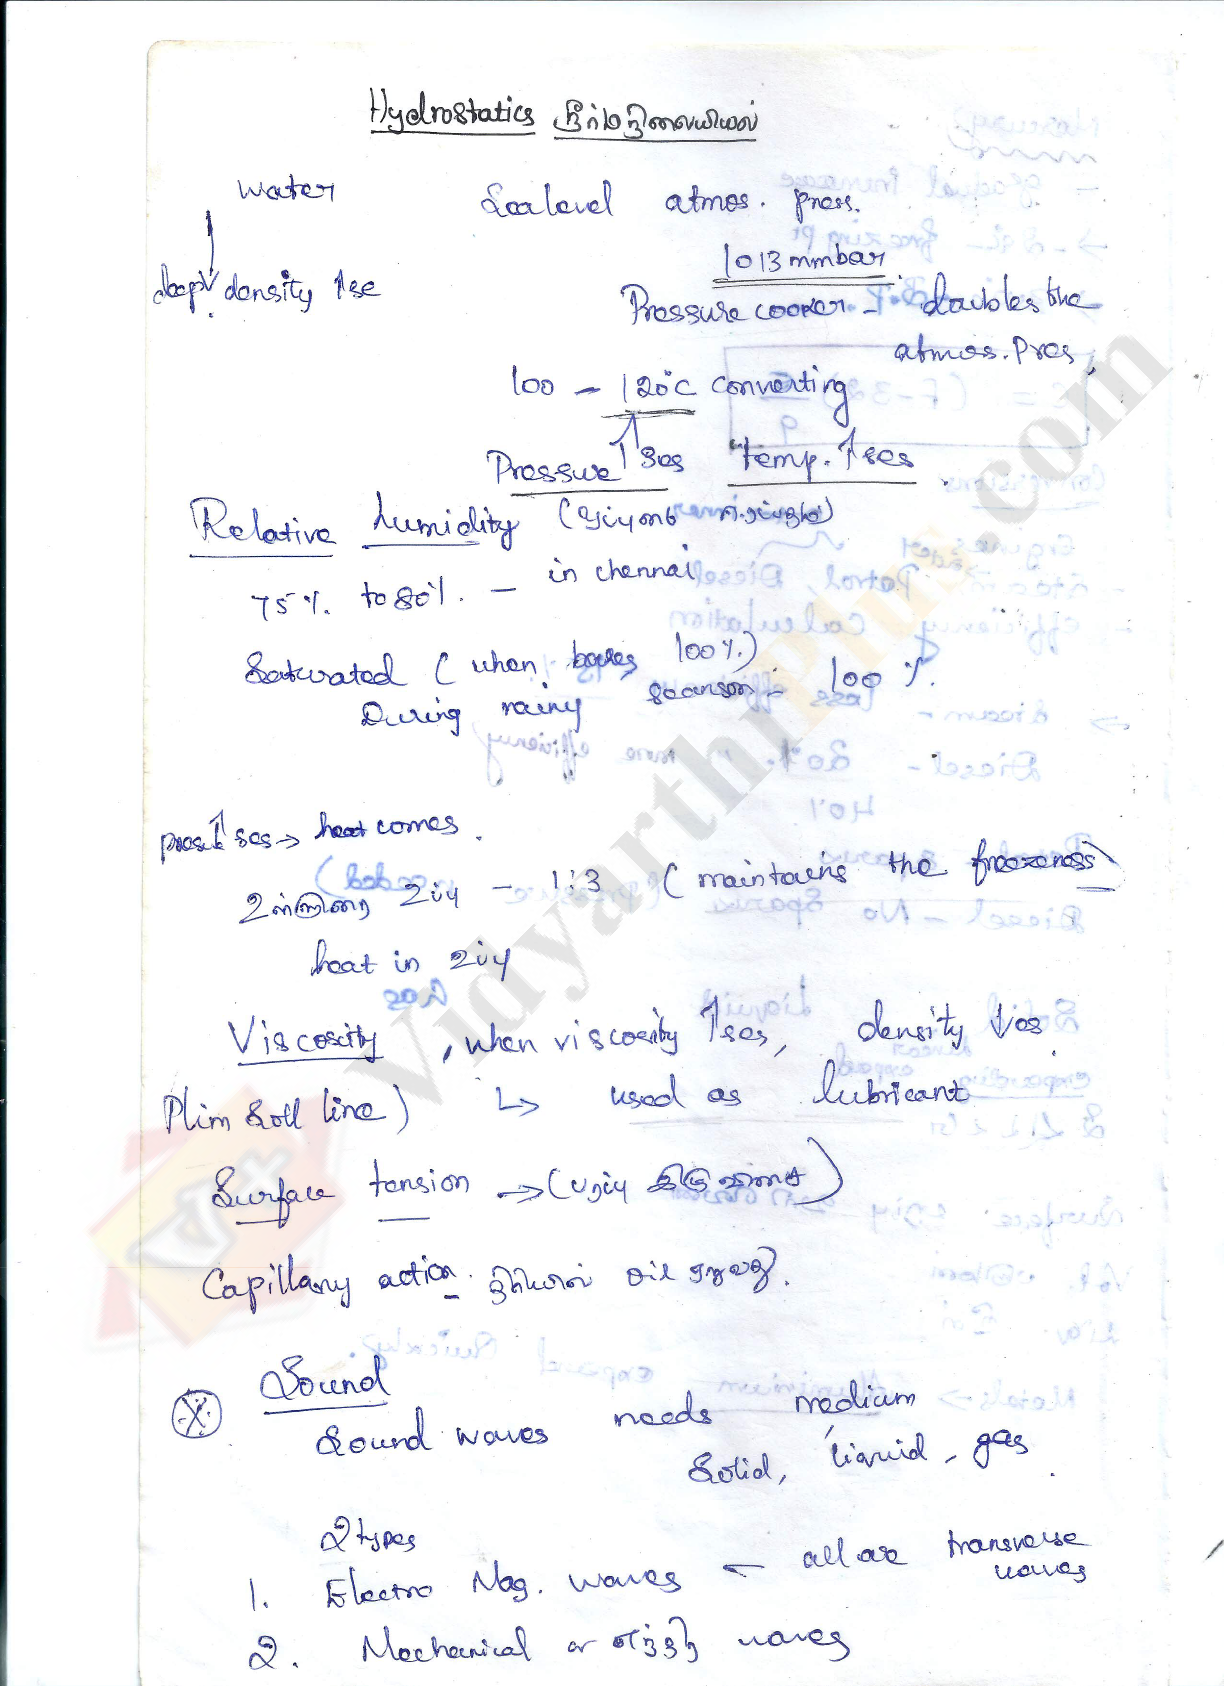 Hydrostatics நீர்மநிலையியல்
water
Sealevel atmos. press.
1013 mmbar
deep density ↑se
Pressure cooker - doubles the
atmos. Pres,
100 - 120°C converting
Pressure ↑ses temp. ↑ses
Relative humidity (ஒப்புமை ஈரப்பதம்)
75%. to 80%. - in chennai
Saturated (when 100%.)
During rainy seanson - 100 %.
press ↑ses → heat comes.
உள்ளுறை உப்பு - 1:3 (maintains the freezeness)
heat in உப்பு
Viscosity, when viscosity ↑ses, density ↓es
Plim Soll line) ↳ used as lubricant
Surface tension → (பரப்பு இழுவிசை)
Capillary action.
Sound
Sound waves needs medium
Solid, liquid, gas.
2 types
1. Electro Mag. waves - all are transverse waves
2. Mechanical or waves
VidyarthiPlus.com
V+